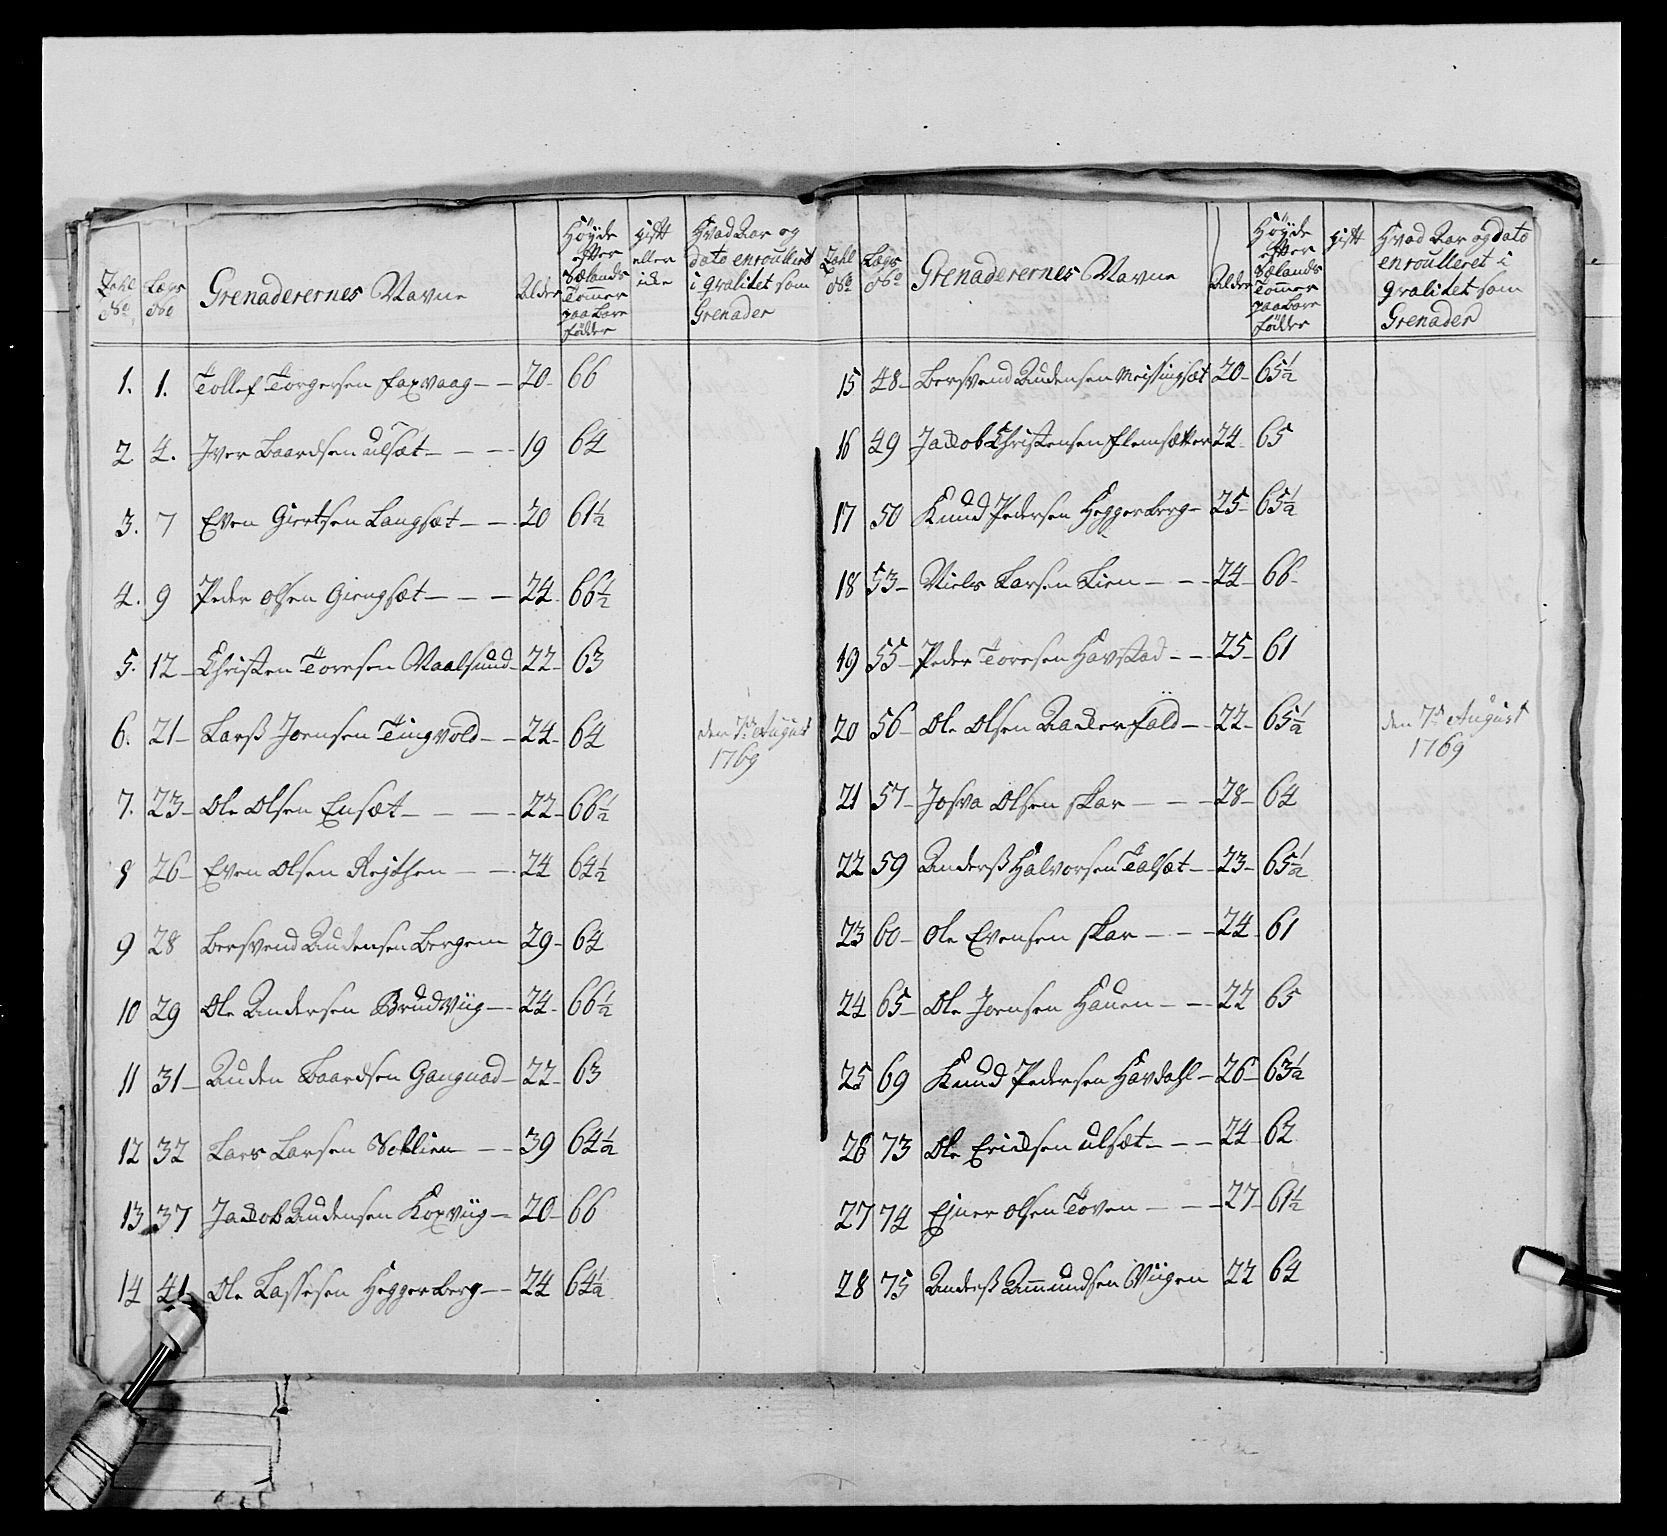 Zahl No Lægs No Grenaderernes Navne Alder Høyde efter Sælands Tomer paa bare födder gift eller icke Hvad Aar og dato enroullert i qvalitet som Grenader
1. 1. Tollef Torgersen Faxvaag – – 20 – 66
2 4. Iver Baardsen Ulsæt – – – 19 64
3. 7 Even Giertsen Langsæt – – 20 61½
4. 9 Peder Olsen Giengsæt – – – 24 – 66½
5. 12 – Christen Toresen Naalsund – 22 – 63
6. 21 – Larß Joensen Tingvold – – 24 – 64 den 7de August
1769
7. 23 – Ole Olsen Ensæt – – – – 22 – 66½
8 26 – Even Olsen Rejthen – – 24 64½
9 28 Bersvend Audensen Bergem 29 – 64
10 29 Ole Andersen Brudviig – – 24 – 66½
11 31 – Auden Baardsen Gangnad – 22 – 63
12 32 Lars Larsen Seklien – – 39 64½
13 37 Jacob Audensen Koxviig – 20 – 66
14 41 Ole Lassesen Heggerberg – – 24 64½
Zahl No Lægs No Grenaderernes Navne Alder Høyde efter Sælands Tomer paa bare födder gift Hvad Aar og dato enroulleret i qvalitet som Grenader
15 48 – Bersvend Audensen Meissingsæt 20 – 65½
16 49 Jacob Christensen Flemsætter 24 – 65
17 50 Knud Pedersen Heggerberg – 25 – 65½
18 53 – Niels Larsen Lien – – – 24 – 66 –
19 55 – Peder Toresen Havstad – – 25 – 61
20 56 – Ole Olsen Aackerfald – – 22 – 65½ den 7de August
1769
21 57 – Josva Olsen Skar – – – 28 – 64
22 59 Anderß Halvorsen Talsæt – – 23 – 65½
23 60 – Ole Evensen Skar – – – 24 – 61
24 65 – Ole Joensen Hauen – – – 22 65
25 69 Knud Pedersen Havdahl – 26 – 63½
26 73 Ole Ericksen Ulsæt – – – 24 – 62
27 74 Ejner Olsen Toven – – – 27 – 61½
28 75 Anderß Amundsen Viigen 22 64